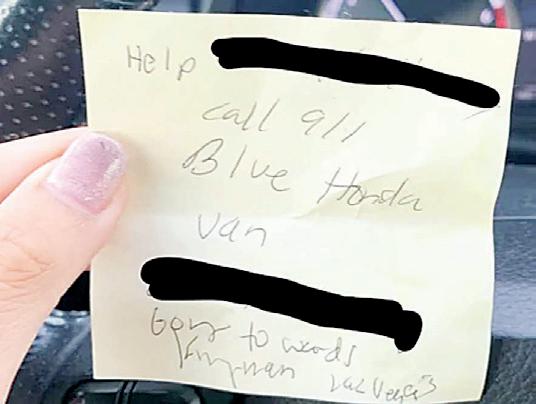 Help
call 911
Blue Honda
van
Going to wards
Kingman Las Vegas